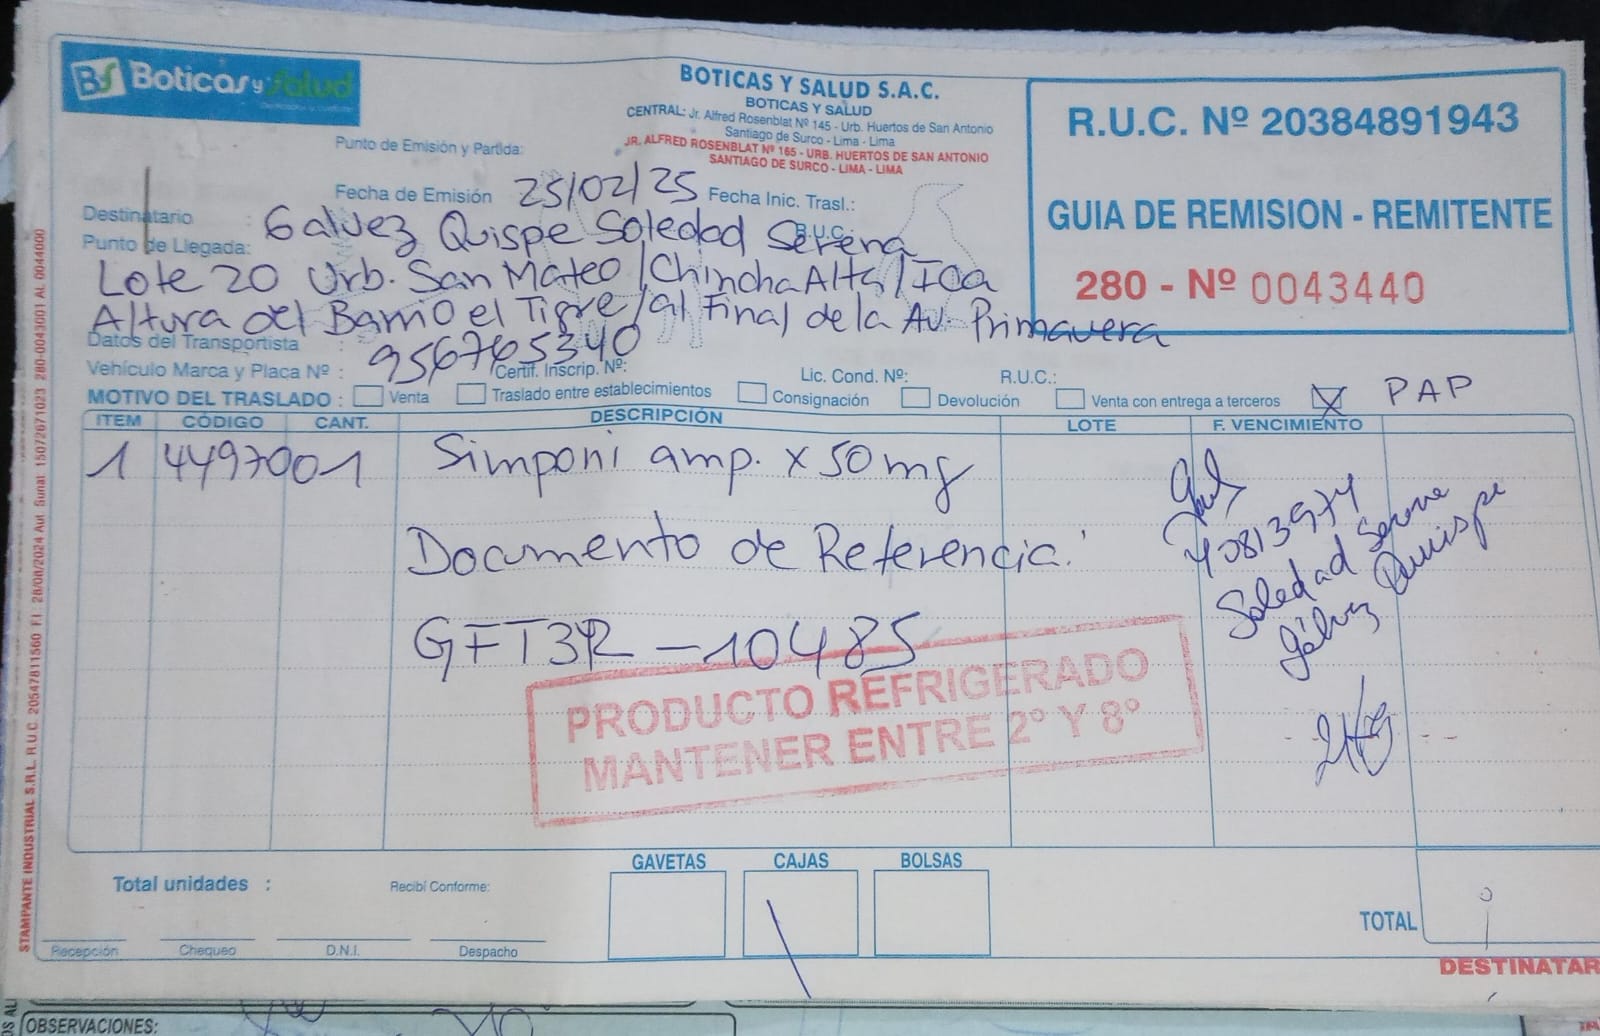 BS Boticas y Salud
BOTICAS Y SALUD S.A.C.
BOTICAS Y SALUD
CENTRAL: Jr. Alfred Rosenblat Nº 145 - Urb. Huertos de San Antonio
Santiago de Surco - Lima - Lima
JR. ALFRED ROSENBLAT Nº 165 - URB. HUERTOS DE SAN ANTONIO
SANTIAGO DE SURCO - LIMA - LIMA
R.U.C. Nº 20384891943
GUIA DE REMISION - REMITENTE
280 - Nº 0043440
Punto de Emisión y Partida:
Fecha de Emisión 25/02/25 Fecha Inic. Trasl.:
Destinatario : Galvez Quispe Soledad Serena R.U.C.
Punto de Llegada:
Lote 20 Urb. San Mateo / Chincha Alta / Ica
Altura del Barrio el Tigre / al Final de la Av. Primavera
Datos del Transportista : 956765340
Vehículo Marca y Placa Nº : Certif. Inscrip. Nº: Lic. Cond. Nº: R.U.C.:
MOTIVO DEL TRASLADO : Venta Traslado entre establecimientos Consignación Devolución Venta con entrega a terceros X PAP
ITEM CÓDIGO CANT. DESCRIPCIÓN LOTE F. VENCIMIENTO
1 449700 1 Simponi amp. x 50mg
Documento de Referencia:
GFT3R - 10485
40813974
Soledad Serena
Gálvez Quispe
PRODUCTO REFRIGERADO
MANTENER ENTRE 2° Y 8°
GAVETAS CAJAS BOLSAS
Total unidades : Recibí Conforme:
TOTAL
Recepción Chequeo D.N.I. Despacho
DESTINATAR
OBSERVACIONES:
STAMPANTE INDUSTRIAL S.R.L. R.U.C. 20547811560 F.I. 28/08/2024 Aut. Sunat 15072671023 280-0043001 AL 0044000